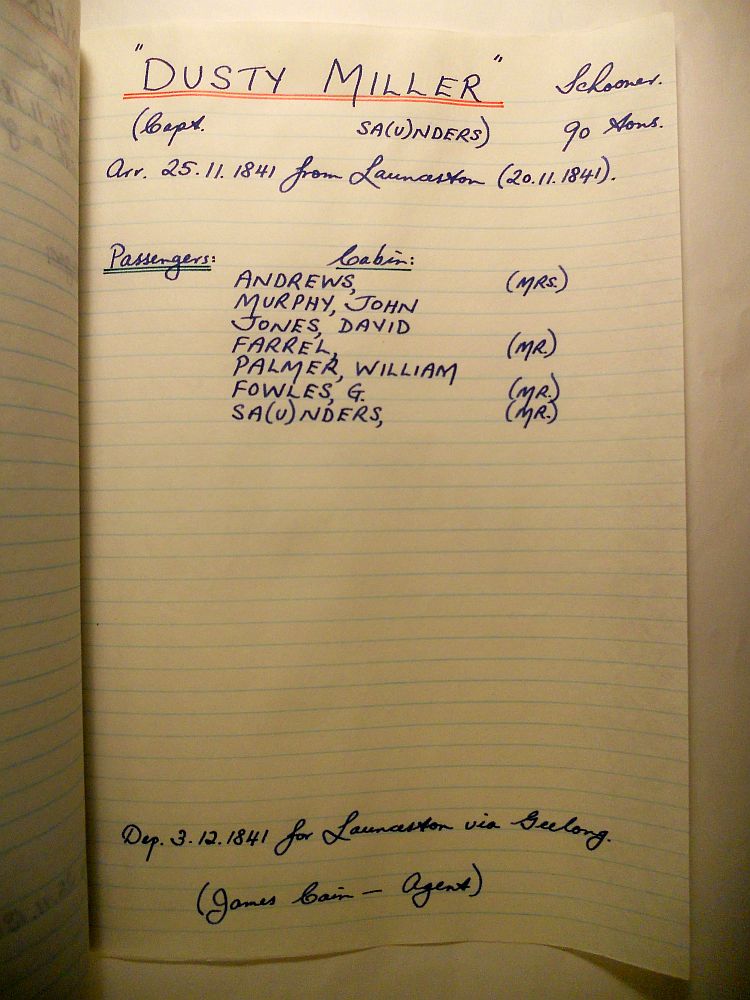 "DUSTY MILLER" Schooner.
(Capt. SA(U)NDERS) 90 tons.
Arr. 25.11.1841 from Launceston (20.11.1841).
Passengers: Cabin:
ANDREWS, (MRS.)
MURPHY, JOHN
JONES, DAVID
FARREL, (MR.)
PALMER, WILLIAM
FOWLES, G. (MR.)
SA(U)NDERS, (MR.)
Dep. 3.12.1841 for Launceston via Geelong.
(James Cain – Agent)